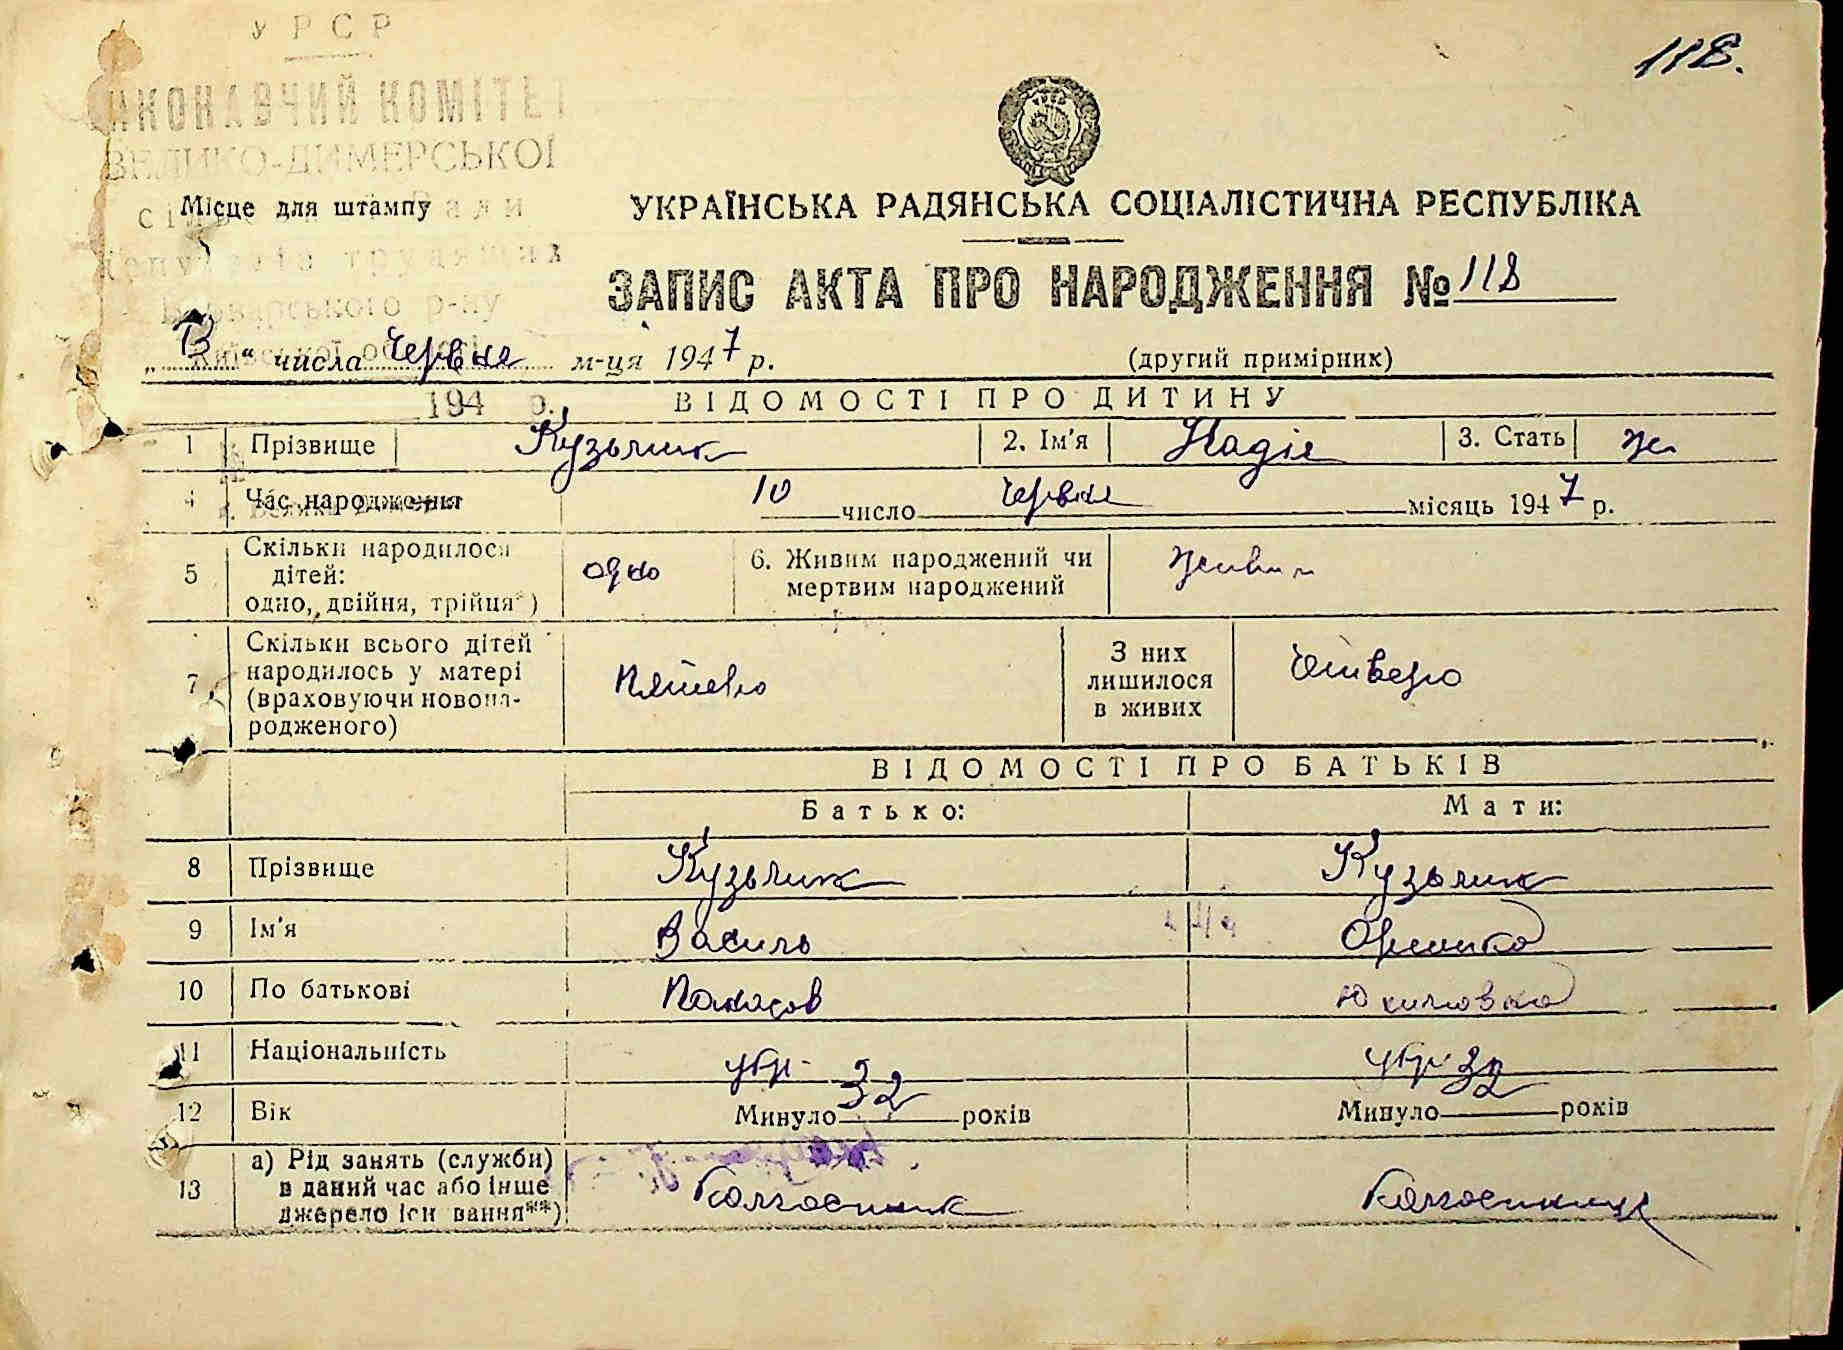 118.
УРСР
ВИКОНАВЧИЙ КОМІТЕТ
ВЕЛИКО-ДИМЕРСЬКОЇ
Місце для штампу
депутатів трудящих
Броварського р-ну
Київської області
194 р.
УКРАЇНСЬКА РАДЯНСЬКА СОЦІАЛІСТИЧНА РЕСПУБЛІКА
ЗАПИС АКТА ПРО НАРОДЖЕННЯ № 118
„13“ числа Червня м-ця 1947 р. (другий примірник)
ВІДОМОСТІ ПРО ДИТИНУ
1 Прізвище Кузьмик 2. Ім'я Надія 3. Стать ж
4 Час народження 10 число Червня місяць 1947 р.
5 Скільки народилося дітей: одно, двійня, трійця*) одно 6. Живим народжений чи мертвим народжений живим
7 Скільки всього дітей народилось у матері (враховуючи новонародженого) Пятеро З них лишилося в живих Четверо
ВІДОМОСТІ ПРО БАТЬКІВ
Батько: Мати:
8 Прізвище Кузьмик Кузьмик
9 Ім'я Василь
10 По батькові Панасов Юхимовна
11 Національність укр. укр
12 Вік Минуло 32 років Минуло 32 років
13 а) Рід занять (служби) в даний час або інше джерело існування**) Колгоспник Колгоспниця